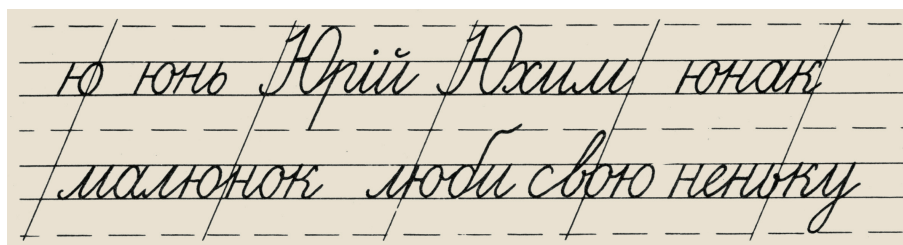 ю юнь Юрій Юхим юнак
малюнок люби свою неньку